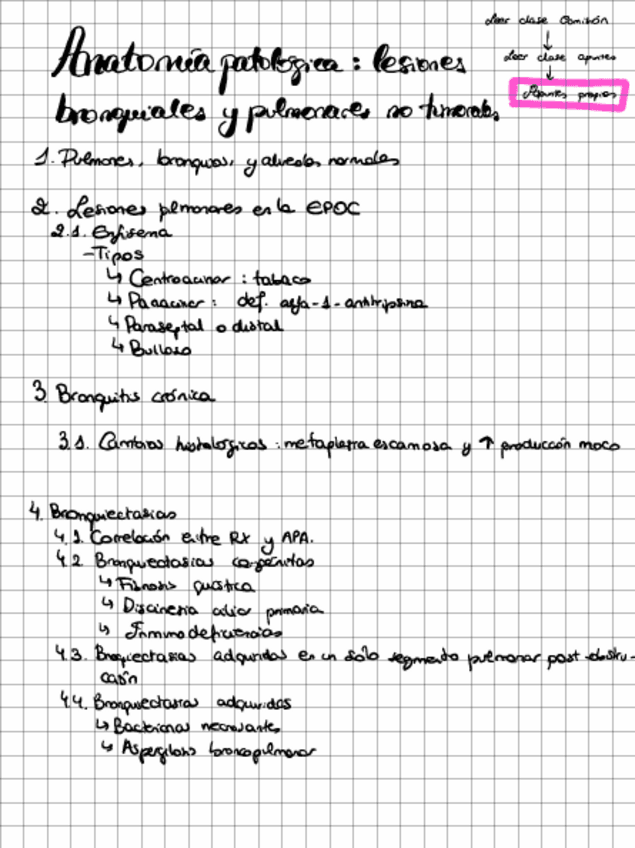 Leer clase Comisión
↓
Leer clase apuntes
↓
Apuntes propios
Anatomía patológica : lesiones
bronquiales y pulmonares no tumorales
1. Pulmones, bronquios, y alveolos normales
2. Lesiones pulmonares en la EPOC
2.1. Enfisema
- Tipos
↳ Centroacinar : tabaco
↳ Panacinar : def. alfa-1-antitripsina
↳ Paraseptal o distal
↳ Bulloso
3 Bronquitis crónica
3.1. Cambios histológicos : metaplasia escamosa y ↑ producción moco
4. Bronquiectasias
4.1. Correlación entre RX y APA.
4.2 Bronquiectasias congénitas
↳ Fibrosis quística
↳ Discinesia ciliar primaria
↳ Inmunodeficiencias
4.3. Bronquiectasias adquiridas en un solo segmento pulmonar post-obstru-
cción
4.4. Bronquiectasias adquiridas
↳ Bacterianas necrosantes
↳ Aspergilosis broncopulmonar